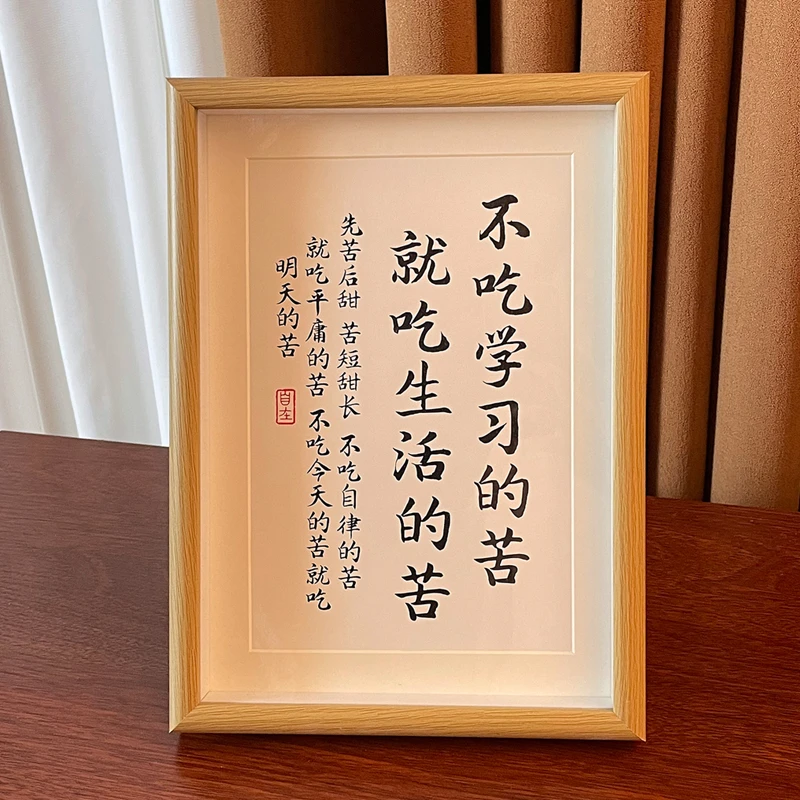 不吃学习的苦
就吃生活的苦
先苦后甜 苦短甜长 不吃自律的苦
就吃平庸的苦 不吃今天的苦就吃
明天的苦
自在